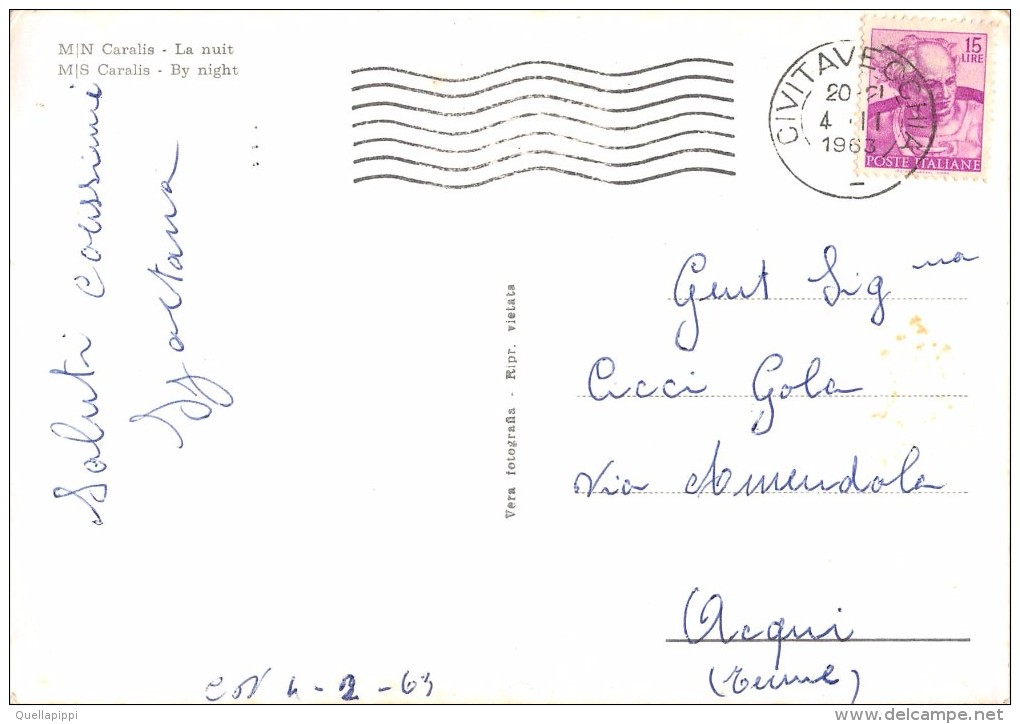 M|N Caralis - La nuit
M|S Caralis - By night
Saluti carissimi
CIVITAVECCHIA
20-21
4 · II
1963
15
LIRE
POSTE ITALIANE
Vera fotografia - Ripr. vietata
Gent Sig na
Cicci Gola
Via Amendola
Acqui
(Terme)
4-2-63
Quellapippi
delcampe.net